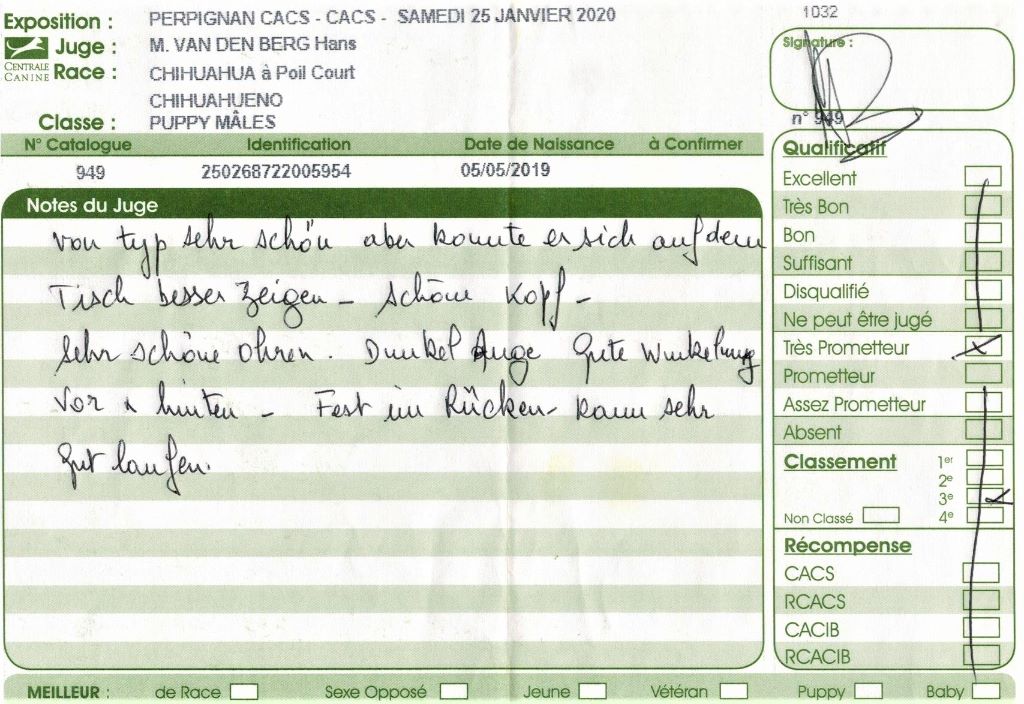 Exposition : PERPIGNAN CACS - CACS - SAMEDI 25 JANVIER 2020
1032
Juge : M. VAN DEN BERG Hans
Signature :
CENTRALE CANINE
Race : CHIHUAHUA à Poil Court
CHIHUAHUENO
Classe : PUPPY MÂLES
n° 949
N° Catalogue Identification Date de Naissance à Confirmer
949 250268722005954 05/05/2019
Notes du Juge
von typ sehr schön aber konnte er sich auf dem
Tisch besser zeigen - schöne Kopf -
Sehr schöne Ohren. Dunkel Auge Gute Winkelung
Vor & hinten - Fest im Rücken - kann sehr
gut laufen.
Qualificatif
Excellent
Très Bon
Bon
Suffisant
Disqualifié
Ne peut être jugé
Très Prometteur X
Prometteur
Assez Prometteur
Absent
Classement 1er
2e
3e
Non Classé 4e
Récompense
CACS
RCACS
CACIB
RCACIB
MEILLEUR : de Race Sexe Opposé Jeune Vétéran Puppy Baby